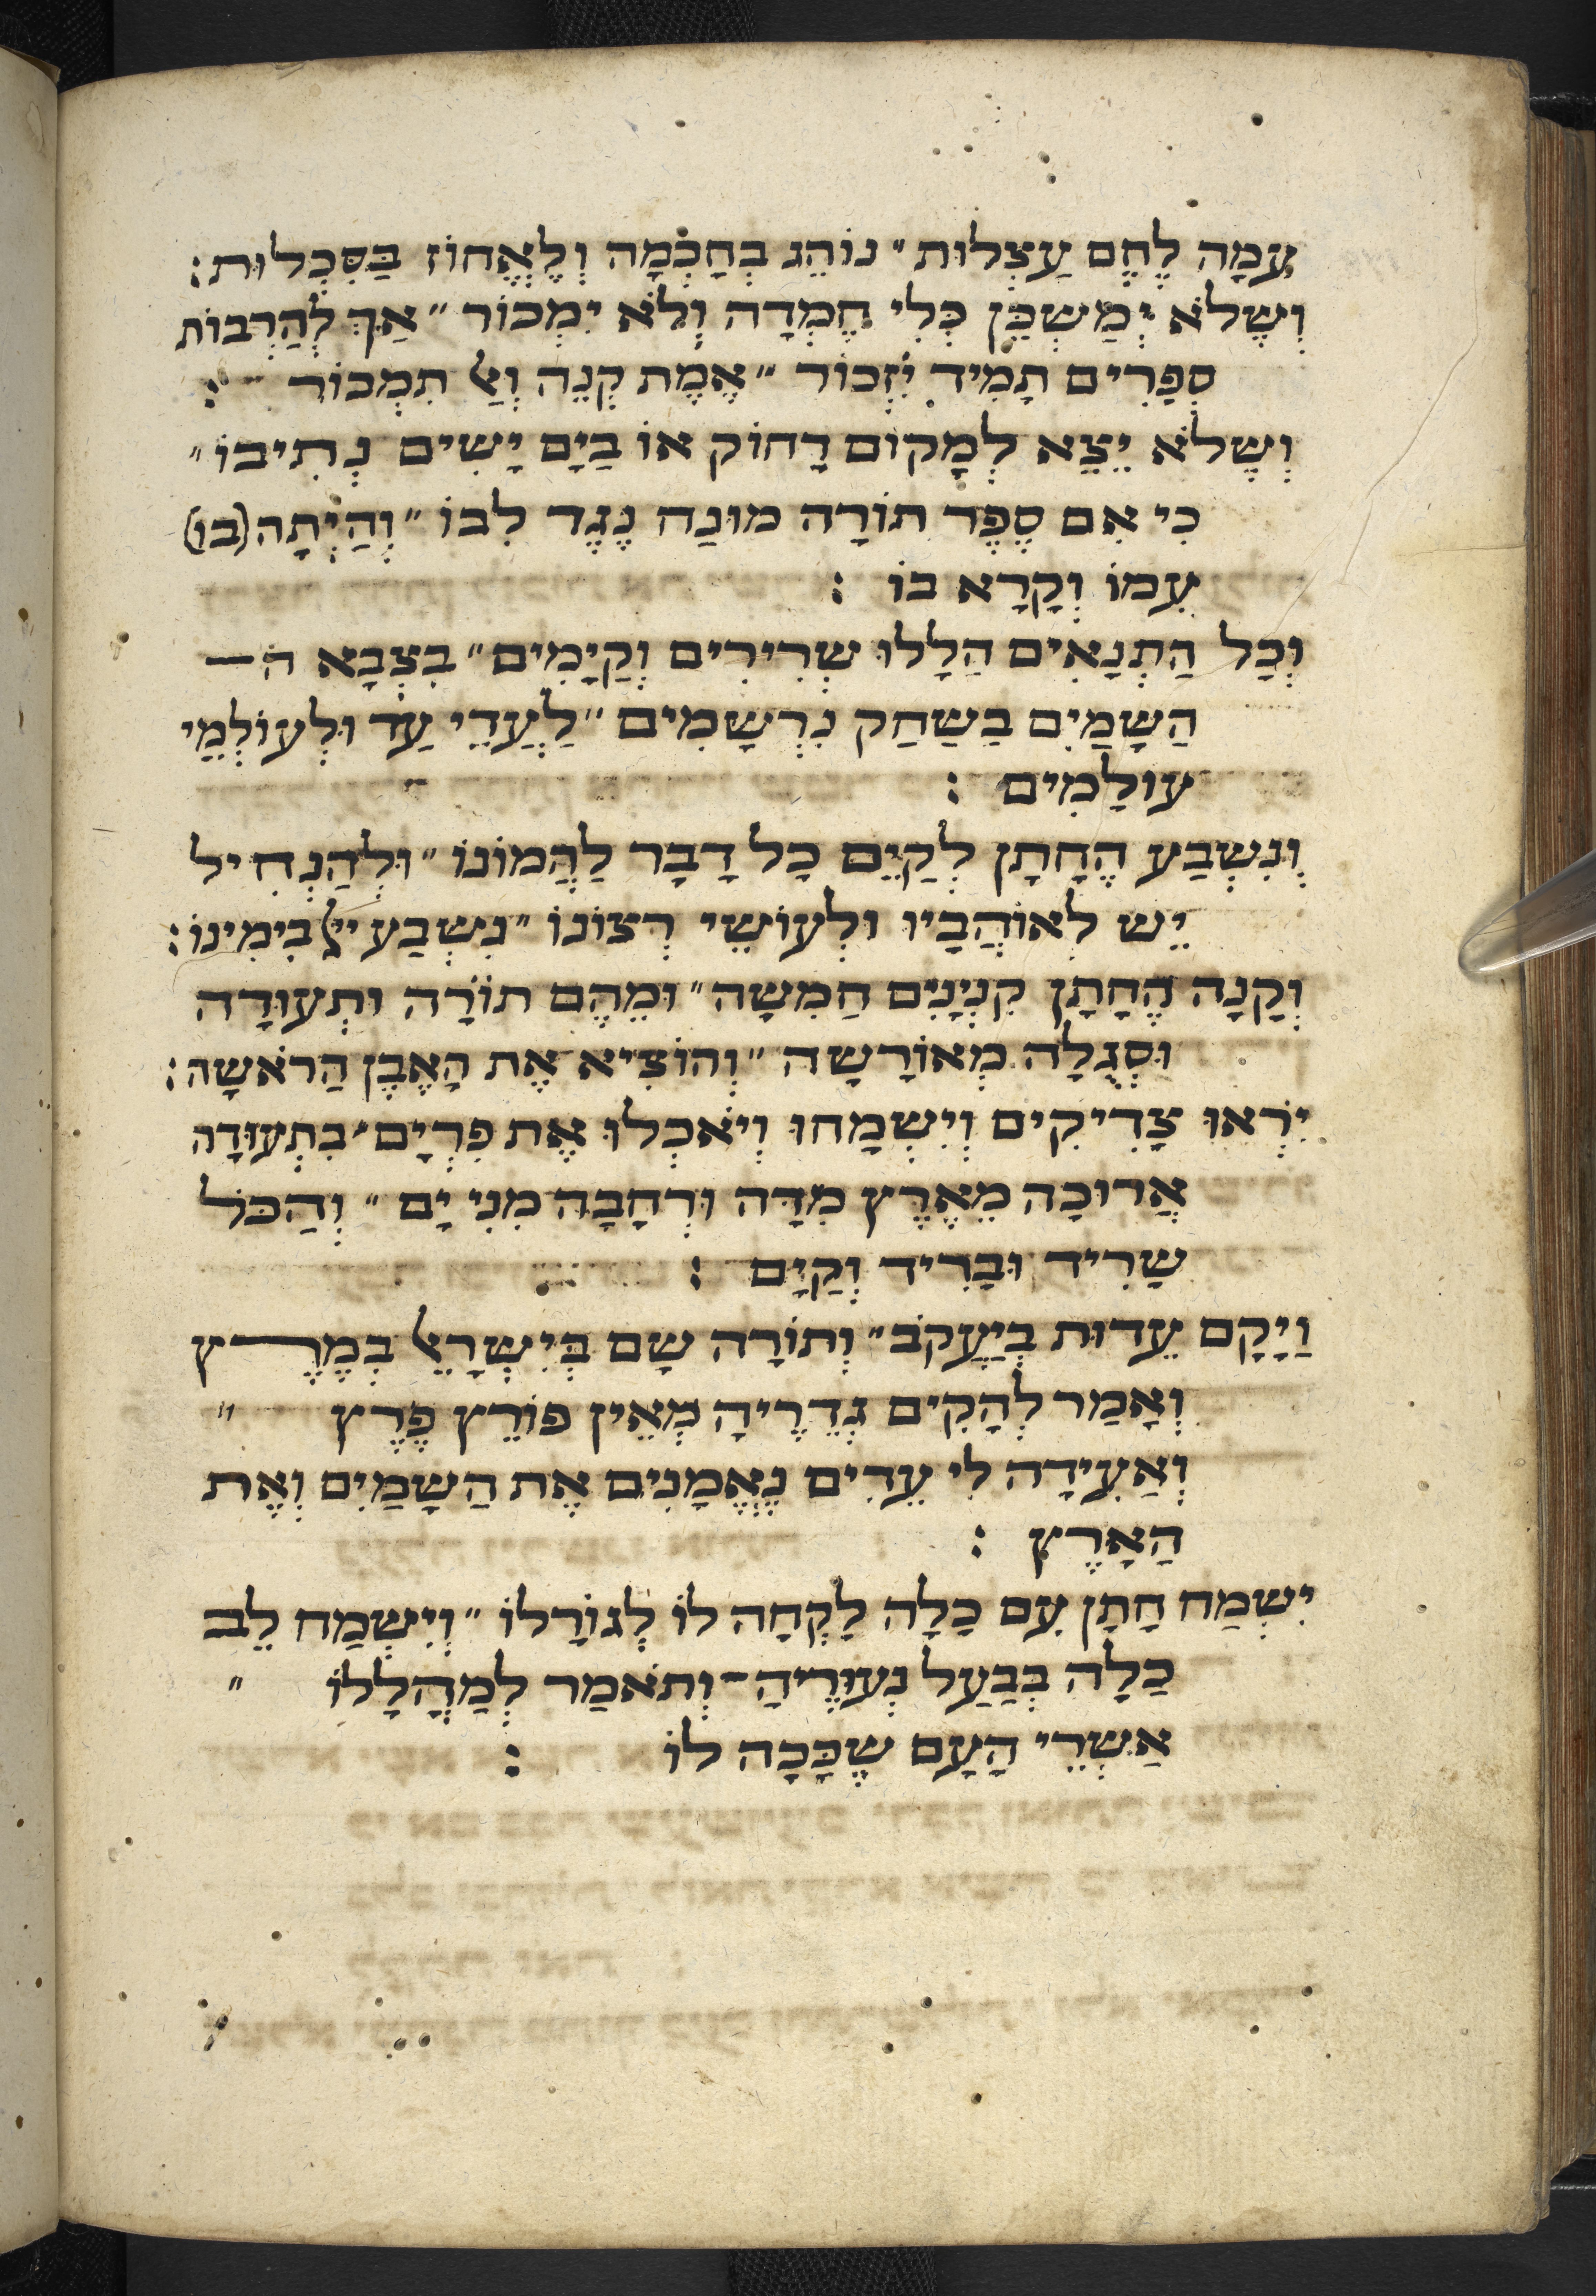 עִמָהּ לֶחֶם עַצְלוּת״ נוֹהֵג בְחָכְמָה וְלֶאֱחוֹז בַּסִּכְלוּת:
וְשֶלֹא יְמַשְכֵּן כְּלִי חֶמְדָה וְלֹא יִמְכּוֹר״ אַךְ לְהַרְבּוֹת
סְפָרִים תָמִיד יִזְכּוֹר״ אֱמֶת קְנֵה וְאַל תִמְכּוֹר :
וְשֶלֹא יֵצֵא לְמָקוֹם רָחוֹק אוֹ בַיָם יָשִׂים נְתִיבוֹ״
כִי אִם סֵפֶר תוֹרָה מוּנַח נֶגֶד לִבּוֹ״ וְהַיְתָה (בו)
עִמוֹ וְקָרָא בוֹ :
וְכָל הַתְנָאִים הַלָלוּ שְרִירִים וְקַיָמִים״ בִצְבָא ה
הַשָמַיִם בַשַחַק נִרְשָמִים״ לַעֲדֵי עַד וּלְעוֹלְמֵי
עוֹלָמִים :
וְנִשְבַע הֶחָתָן לְקַיֵם כָל דָבָר לַהֲמוֹנוֹ״ וּלְהַנְחִיל
יֵש לְאוֹהֲבָיו וּלְעוֹשֵי רְצוֹנוֹ״ נִשְבַע ייָ בִימִינוֹ:
וְקָנָה הֶחָתָן קִנְיָנִים חַמִשָה״ וּמֵהֶם תוֹרָה וּתְעוּדָה
וּסְגֻלָה מְאוֹרָשָה״ וְהוֹצִיא אֶת הָאֶבֶן הַרֹאשָה:
יִרְאוּ צַדִיקִים וְיִשְמָחוּ וְיֹאכְלוּ אֶת פִרְיָם״ בִתְעוּדָה
אֲרוּכָה מֵאֶרֶץ מִדָּה וּרְחָבָה מִנִי יָם״ וְהַכֹּל
שָרִיד וּבָרִיד וְקַיָם :
וַיָקֶם עֵדוּת בְיַעֲקֹב״ וְתוֹרָה שָם בְּיִשְרָאֵל בְמֶרֶץ
וְאָמַר לְהָקִים גְדֵרֶיהָ מְאֵין פּוֹרֵץ פֶּרֶץ ״
וְאַעִידָה לִי עֵדִים נֶאֱמָנִים אֶת הַשָמַיִם וְאֶת
הָאָרֶץ :
יִשְמַח חָתָן עִם כָלָה לָקְחָה לוֹ לְגוֹרָלוֹ״ וְיִשְמַח לֵב
כַלָה בְּבַעַל נְעוּרֶיהָ־ וְתֹאמַר לְמַהֲלָלוֹ ״
אַשְרֵי הָעָם שֶכָּכָה לוֹ :